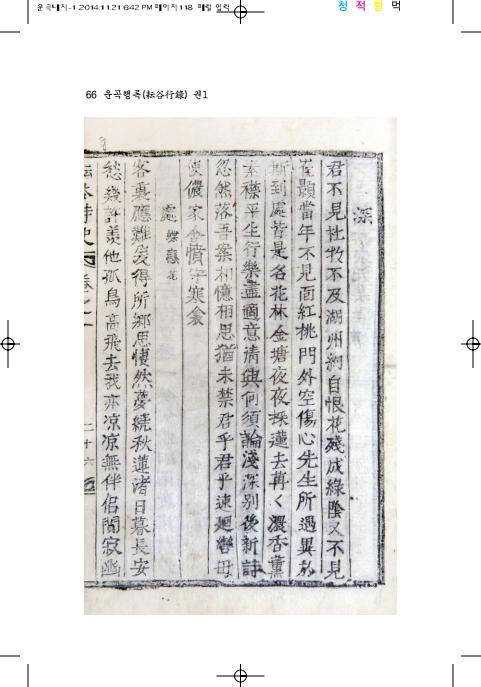 운곡대지-1 2014.11.21 6:42 PM 페이지118
청 적 황 먹
66 운곡행록(耘谷行錄) 권1
深
君不見杜牧不及湖州約自恨花殘成綠陰又不見
崔顥當年不見面紅桃門外空傷心先生所遇異於
斯到處皆是名花林金塘夜夜採蓮去苒〱濃香薰
素襟平生行樂盡適意淸興何須論淺深別後新詩
忽然落吾案相憶相思猶未禁君乎君乎速廻轡毋
使儂家會憤字寒衾
處 蝶戀花
客裏應難爰得所鄕思悽然夢繞秋蓮渚日暮長安
愁幾許羨他孤鳥高飛去我亦凉凉無伴侶閴寂幽
耘谷詩史 卷之一 二十六